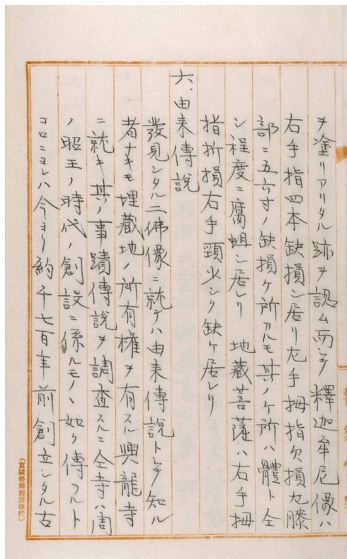 ヲ塗リアリタル跡ヲ認ム而シテ釋迦牟尼像ハ
右手指四本缺損シ居リ左手拇指欠損左膝
部ニ五六寸ノ缺損ケ所アルモ其ノケ所ハ體ト全
シ程度ニ腐蛆シ居レリ 地藏菩薩ハ右手拇
指折損右手頸少シク缺ケ居レリ
六、由来傳説
發見シタル二佛像ニ就テハ由来傳説トシテ知ル
者ナキモ埋藏地ノ所有權ヲ有スル興龍寺
ニ就キ其ノ事蹟傳説ヲ調査スルニ仝寺ハ周
ノ昭王ノ時代ノ創設ニ係ルモノヽ如ク傳フルト
コロニヨレハ今ヨリ約千七百年前創立シタル古